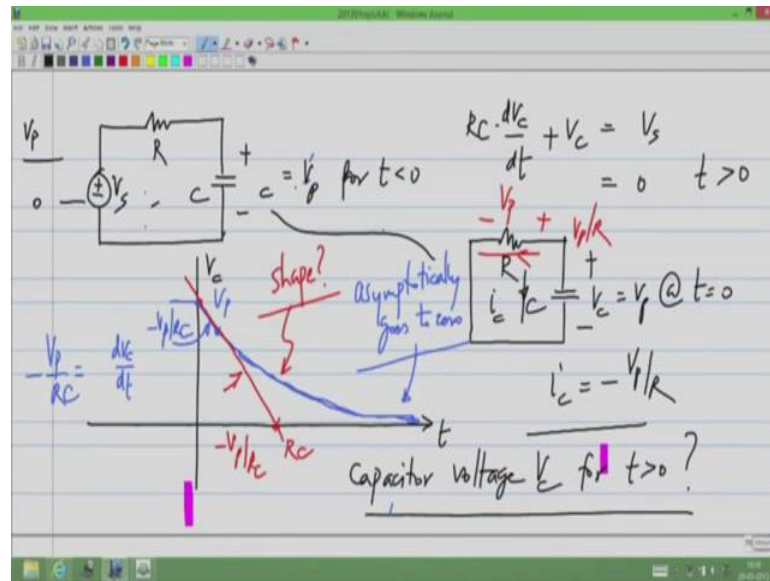 Vp
0
+
Vs
R
C
+
-
c = Vp for t<0
RC · dVc/dt + Vc = Vs
= 0 t > 0
- Vp +
Vp/R
R
ic
C
+
-
Vc = Vp @ t=0
ic = - Vp/R
Vc
Vp
-Vp/RC
shape?
asymptotically
goes to zero
- Vp/RC = dVc/dt
-Vp/RC
RC
t
Capacitor voltage Vc for t>0 ?